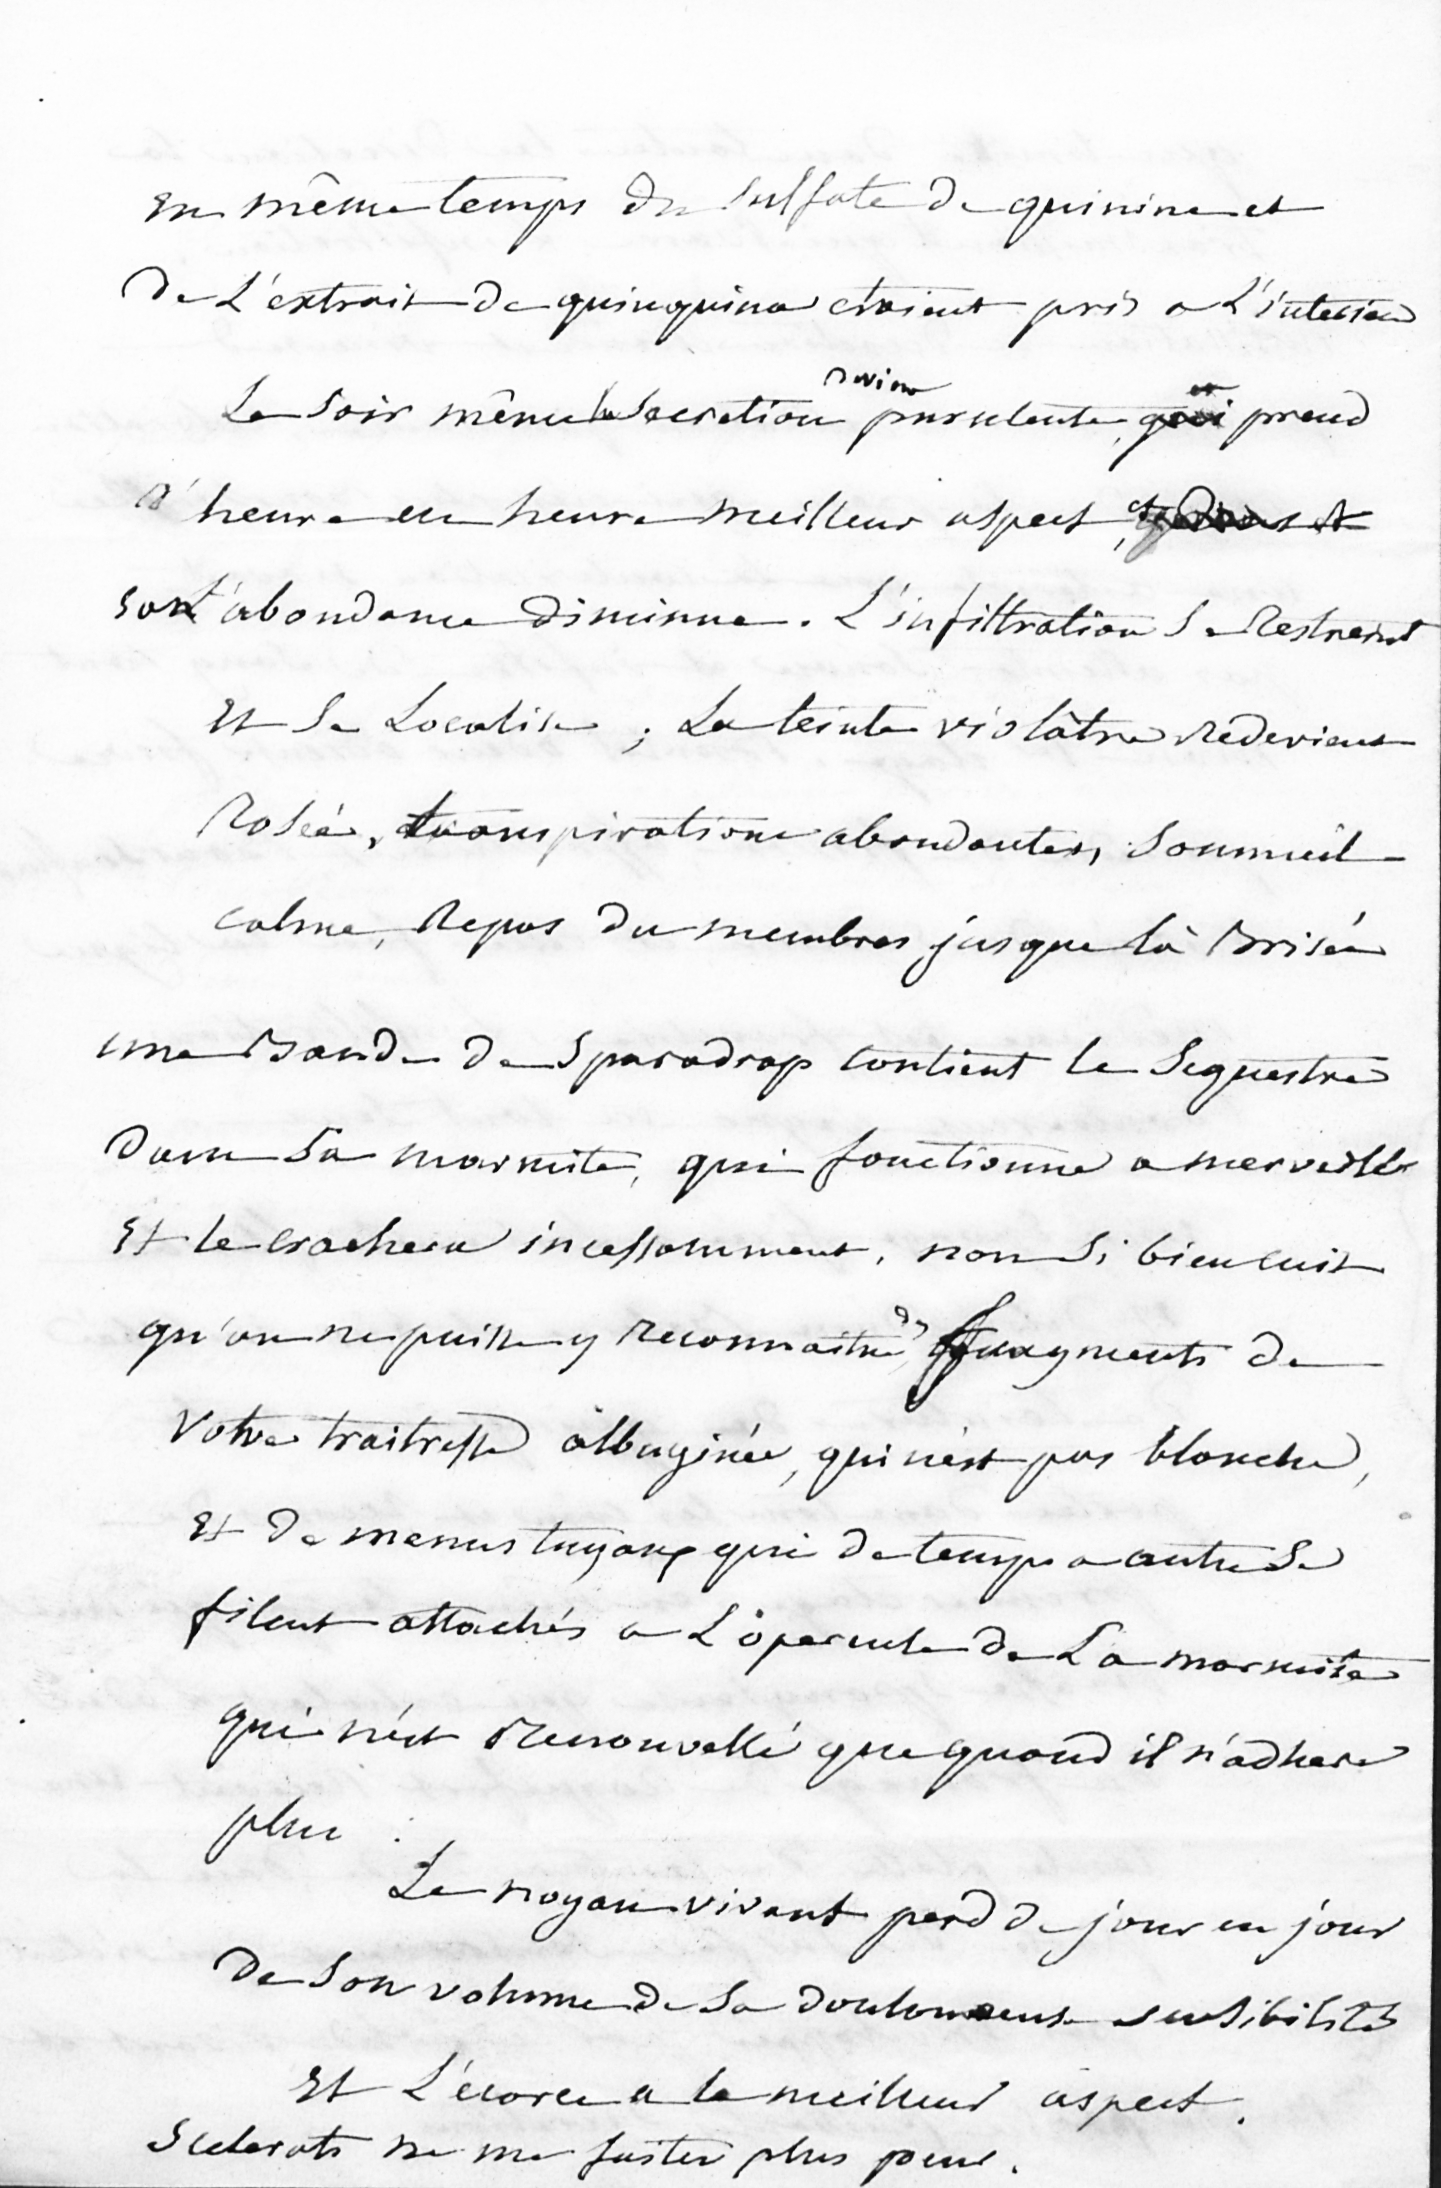 en même temps du sulfate de quinine et
de L'extrait de quinquina etaient pris a L'interieur
devient
Le soir même la secretion purulente, et prend
d'heure en heure meilleur aspect,
son abondance diminue. L'infiltration se restreint
Et se Localise ; La teinte violâtre redevient
Rosée, transpirations abondantes, sommeil
calme, Repos du membres jusque là Brisés
une Bande de sparadrap contient le sequestre
dans sa marmite, qui fonctionne a merveille
Et le crachera incessamment, non si bien cuit
qu'on ne puisse y reconnaitre des fragments de
Votre traitresse albuginée, qui n'est pas blanche,
Et de menus tuyaux qui de temps a autre se
filent attachés a L'opercule de La marmite
qui n'est Renouvellé que quand il n'adhere
plus.
Le noyau vivant perd de jour en jour
de son volume de sa douloureuse sensibilité
Et L'écorce a le meilleur aspect.
Scelerats ne me faites plus peur.